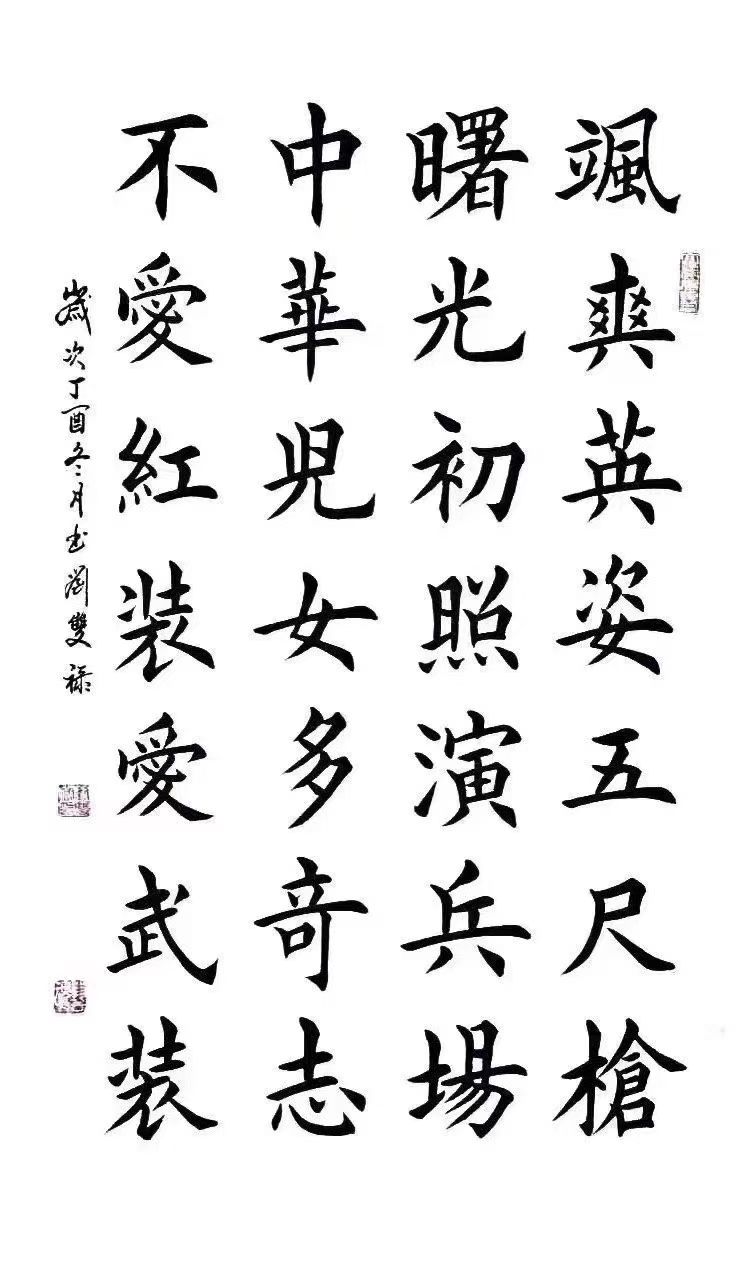 颯爽英姿五尺槍
曙光初照演兵場
中華兒女多奇志
不愛紅裝愛武裝
歲次丁酉冬月書劉雙祿